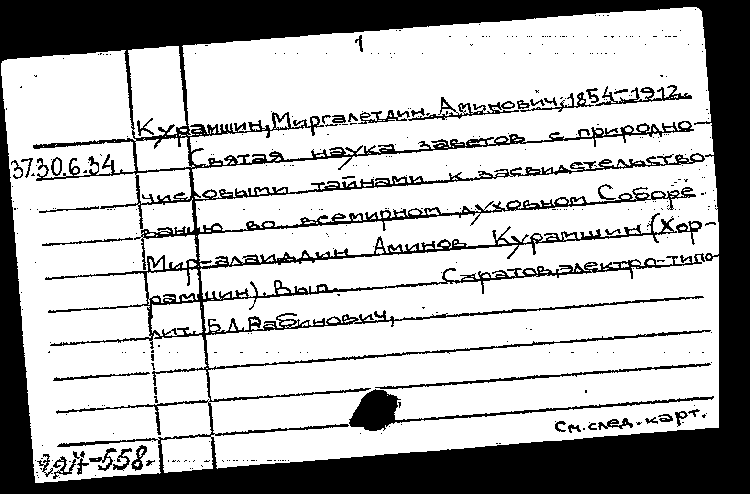 1
Курамшин, Миргалетдин Аминович, 1854-1912.
37.30.6.34.
Святая наука заветов с природно-
числовыми тайнами к засвидетельство-
ванию во всемирном духовном Соборе.
Мир-алаиддин Аминов Курамшин (Хор-
рамшин). Вып. Саратов, электро-типо-
лит. Б.Л. Рабинович,
См. след. карт.
-558.